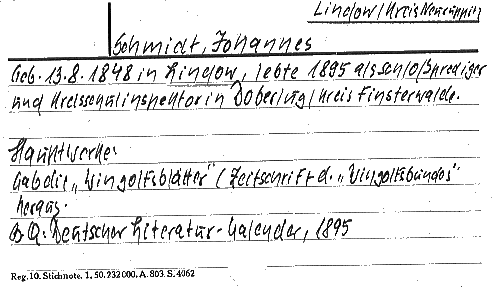 Lindow/Kreis Neuruppin
Schmidt, Johannes
Geb. 13.8.1848 in Lindow, lebte 1895 als Schloßprediger
und Kreisschulinspektor in Doberlug/Kreis Finsterwalde.
Hauptwerke:
Gab die „Wingolfsblätter" (Zeitschrift d. „Wingolfsbundes"
heraus.
B.Q.: Deutscher Literatur-Kalender, 1895
Reg. 10. Stichnote. 1. 50. 232000. A. 803. S. 4062